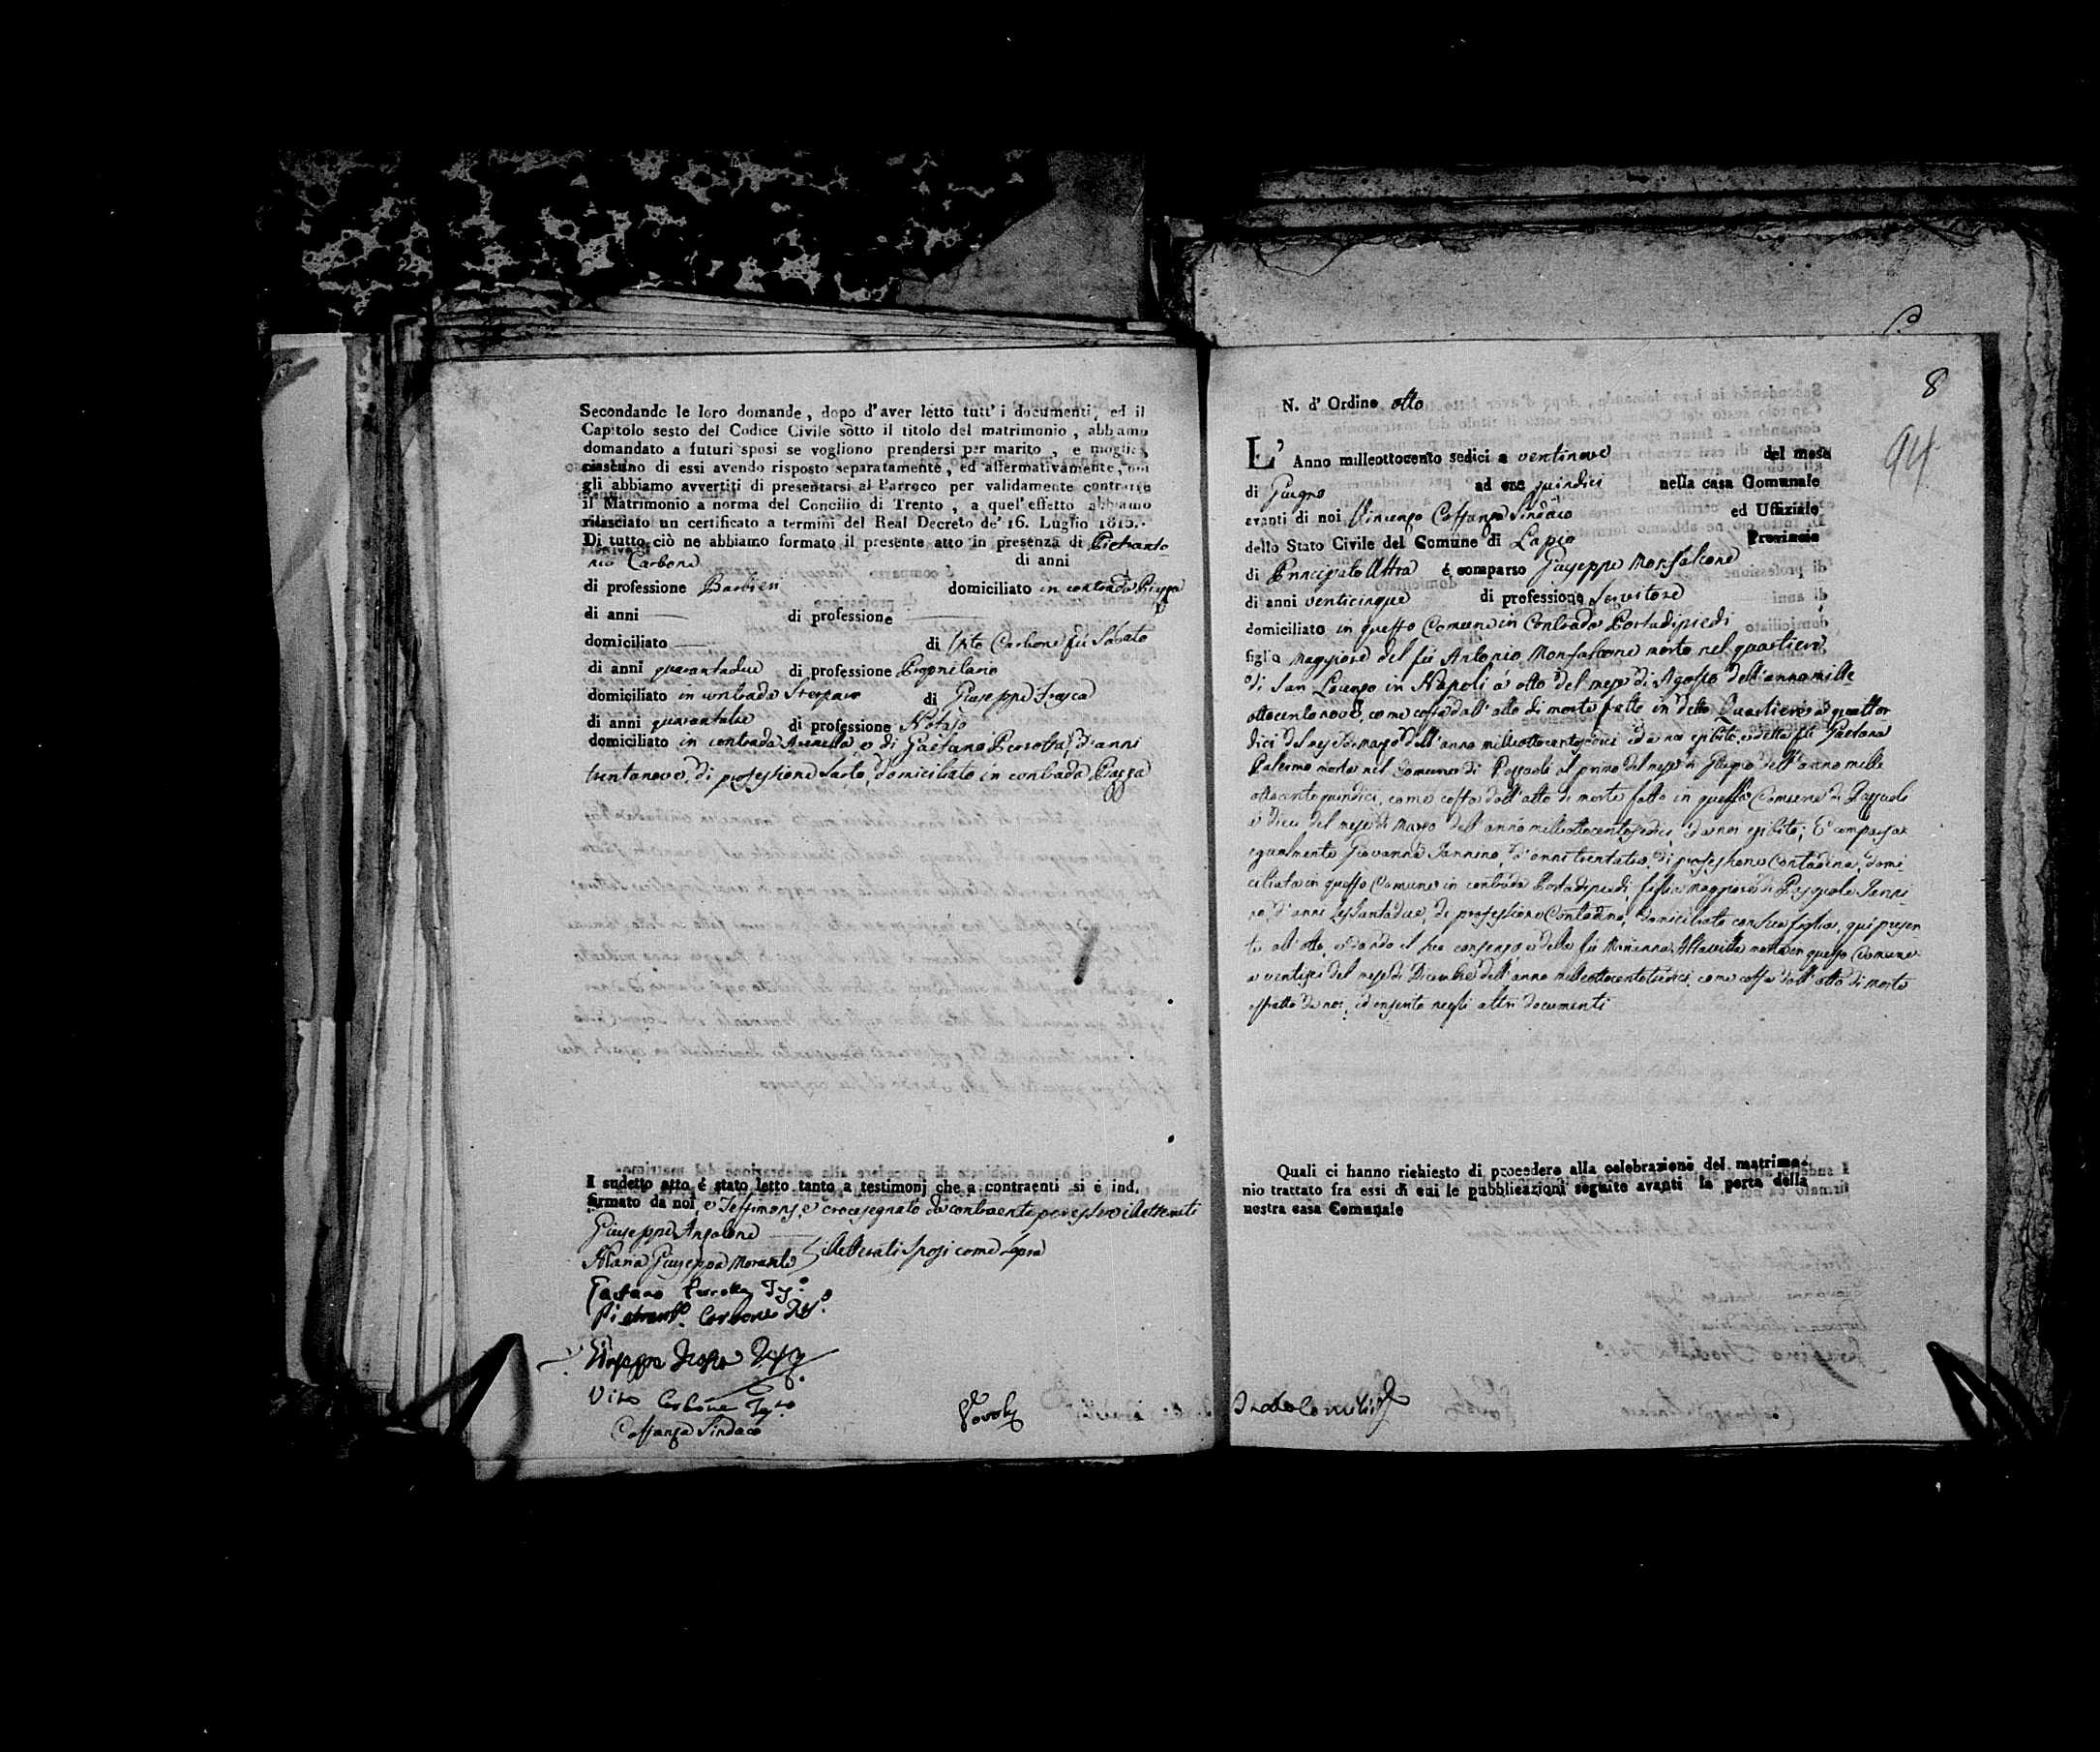 Secondando le loro domande, dopo d'aver letto tutt' i documenti, ed il
Capitolo sesto del Codice Civile sotto il titolo del matrimonio, abbiamo
domandato a futuri sposi se vogliono prendersi per marito, e moglie,
ciascuno di essi avendo risposto separatamente, ed affermativamente, noi
gli abbiamo avvertiti di presentarsi al Parroco per validamente contrarre
il Matrimonio a norma del Concilio di Trento, a quel'effetto abbiamo
rilasciato un certificato a termini del Real Decreto de' 16. Luglio 1815.
Di tutto ciò ne abbiamo formato il presente atto in presenza di Pietranto-
nio Carbone di anni
di professione Barbieri domiciliato in contrada Piazza
di anni di professione
domiciliato di Vito Carbone fu Sabato
di anni quarantadue di professione Proprietario
domiciliato in contrada di Giuseppe Frasca
di anni di professione Notajo
domiciliato in contrada e di Gaetano Perrotta, d'anni
trentanove, di professione Sarto, domiciliato in contrada Piazza
I sudetto atto é stato letto tanto a testimonj che a contraenti si é ind.
firmato da noi, e Testimonj, e crocesegnato da contraenti per essere illetterati
Giuseppe Anzalone
Maria Giuseppa Morante illetterati Sposi come sopra
Gaetano Perrotta
Carbone
Giuseppe Frasca
Vito Carbone
Costanza Sindaco
8
94
N. d' Ordine otto
L' Anno milleottocento sedici a ventinove del mese
di Giugno ad ore quindici nella casa Comunale
avanti di noi Vincenzo Costanza Sindaco ed Uffiziale
dello Stato Civile del Comune di Lapio Provincia
di Principato Ultra é comparso Giuseppe Monfalcone
di anni venticinque di professione Servitore
domiciliato in questo Comune in Contrada Portadipiedi
figlio maggiore del fù Antonio Monfalcone morto nel quartiere
di San Lorenzo in Napoli a' otto del mese di Agosto dell'anno mille
ottocentonove, come costa dall'atto di morte fatto in detto Quartiere a' quattor
dici del mese di marzo dell'anno milleottocentosedici ed a noi esibito, e della fù
Palermo morta nel Comune di Pozzuoli al primo del mese di Giugno dell'anno mille
ottocentoquindici, come costa dall'atto di morte fatto in questo Comune di Pozzuoli
a' dieci del mese di Marzo dell'anno milleottocentosedici, da noi esibito; E' comparsa
egualmente Giovanna Iannino, d'anni trentatre, di professione Contadina, domi
ciliata in questo Comune in contrada Portadipiedi, figlia maggiore di Pasquale Ianni
no, d'anni sessantadue, di professione Contadino, domiciliato con sua figlia, qui presen
te all'atto, e dando il suo consenso, e della fù Altavilla morta in questo Comune
a ventisei del mese di Dicembre dell'anno milleottocentotredici, come costa dall'atto di morte
estratto da noi, ed inserito negli altri documenti
Quali ci hanno richiesto di procedere alla celebrazione del matrimo-
nio trattato fra essi di cui le pubblicazioni seguite avanti la porta della
nostra casa Comunale